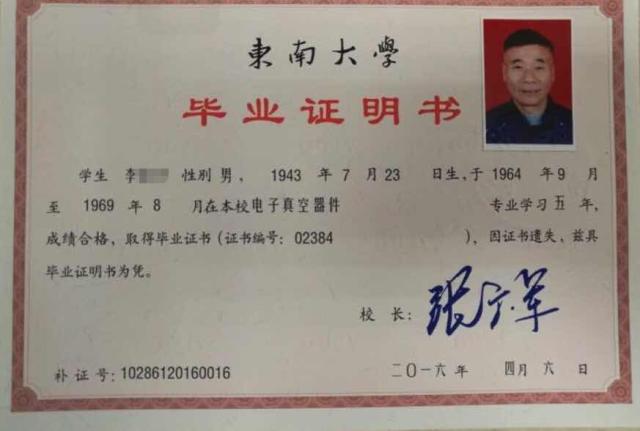 東南大學
毕业证明书
学生 李 性别 男, 1943 年 7 月 23 日生,于 1964 年 9 月
至 1969 年 8 月在本校电子真空器件 专业学习 五 年,
成绩合格,取得毕业证书(证书编号: 02384 ),因证书遗失、兹具
毕业证明书为凭。
校 长: 张广军
补 证 号: 10286120160016 二〇一六年 四月 六 日